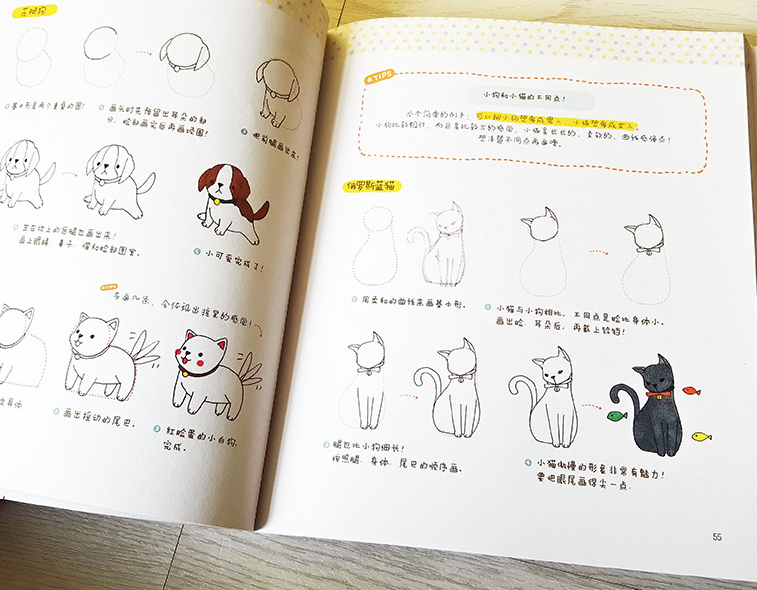 花腿狗
基本形是两个重叠的圆!
画头时先预留出耳朵的部
分，脸部画完后再画烧圈!
把前腿画出来!
坐在地上的后腿也画出来!
画上眼睛、鼻子、嘴和脸部图案.
小可爱完成了!
TIPS
多画几条，会体现出摇晃的感觉!
身体
画出摇动的尾巴.
红脸蛋的小白狗,
完成.
TIPS
小狗和小猫的不同点!
举个简单的例子，可以把小狗想象成男人，小猫想象成女人.
小狗比较粗壮，而且是比较方的感觉，小猫是长长的、柔软的、曲线感强点!
想清楚不同点再画噢.
俄罗斯蓝猫
1 用柔和的曲线来画基本形.
2 小猫与小狗相比，不同点是脸比身体小.
画出脸、耳朵后，再戴上铃铛!
3 腿也比小狗细长!
按照腿、身体、尾巴的顺序画.
4 小猫傲慢的形象非常有魅力!
要把眼尾画得尖一点.
55